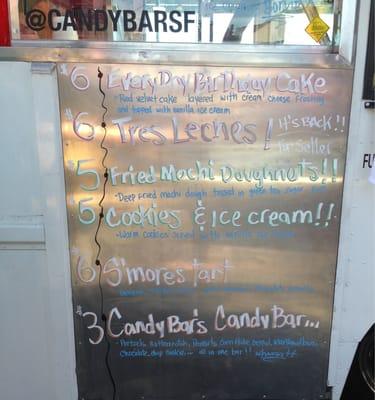 @CANDYBARSF
$6 EveryDay Birthday Cake
- Red velvet cake layered with cream cheese frosting
and topped with vanilla ice cream
$6 Tres Leches! It's BACK!!
Seller
$5 Fried Mochi Doughnuts!!
- Deep fried mochi dough tossed in green tea sugar
$5 Cookies & Ice cream!!
- Warm cookies served with vanilla ice cream
$6 S'mores tart
$3 CandyBar's CandyBar...
- Pretzels, Butterfinger, Peanuts, Corn flake cereal, Marshmallows,
Chocolate chip cookie... all in one bar!!
FU